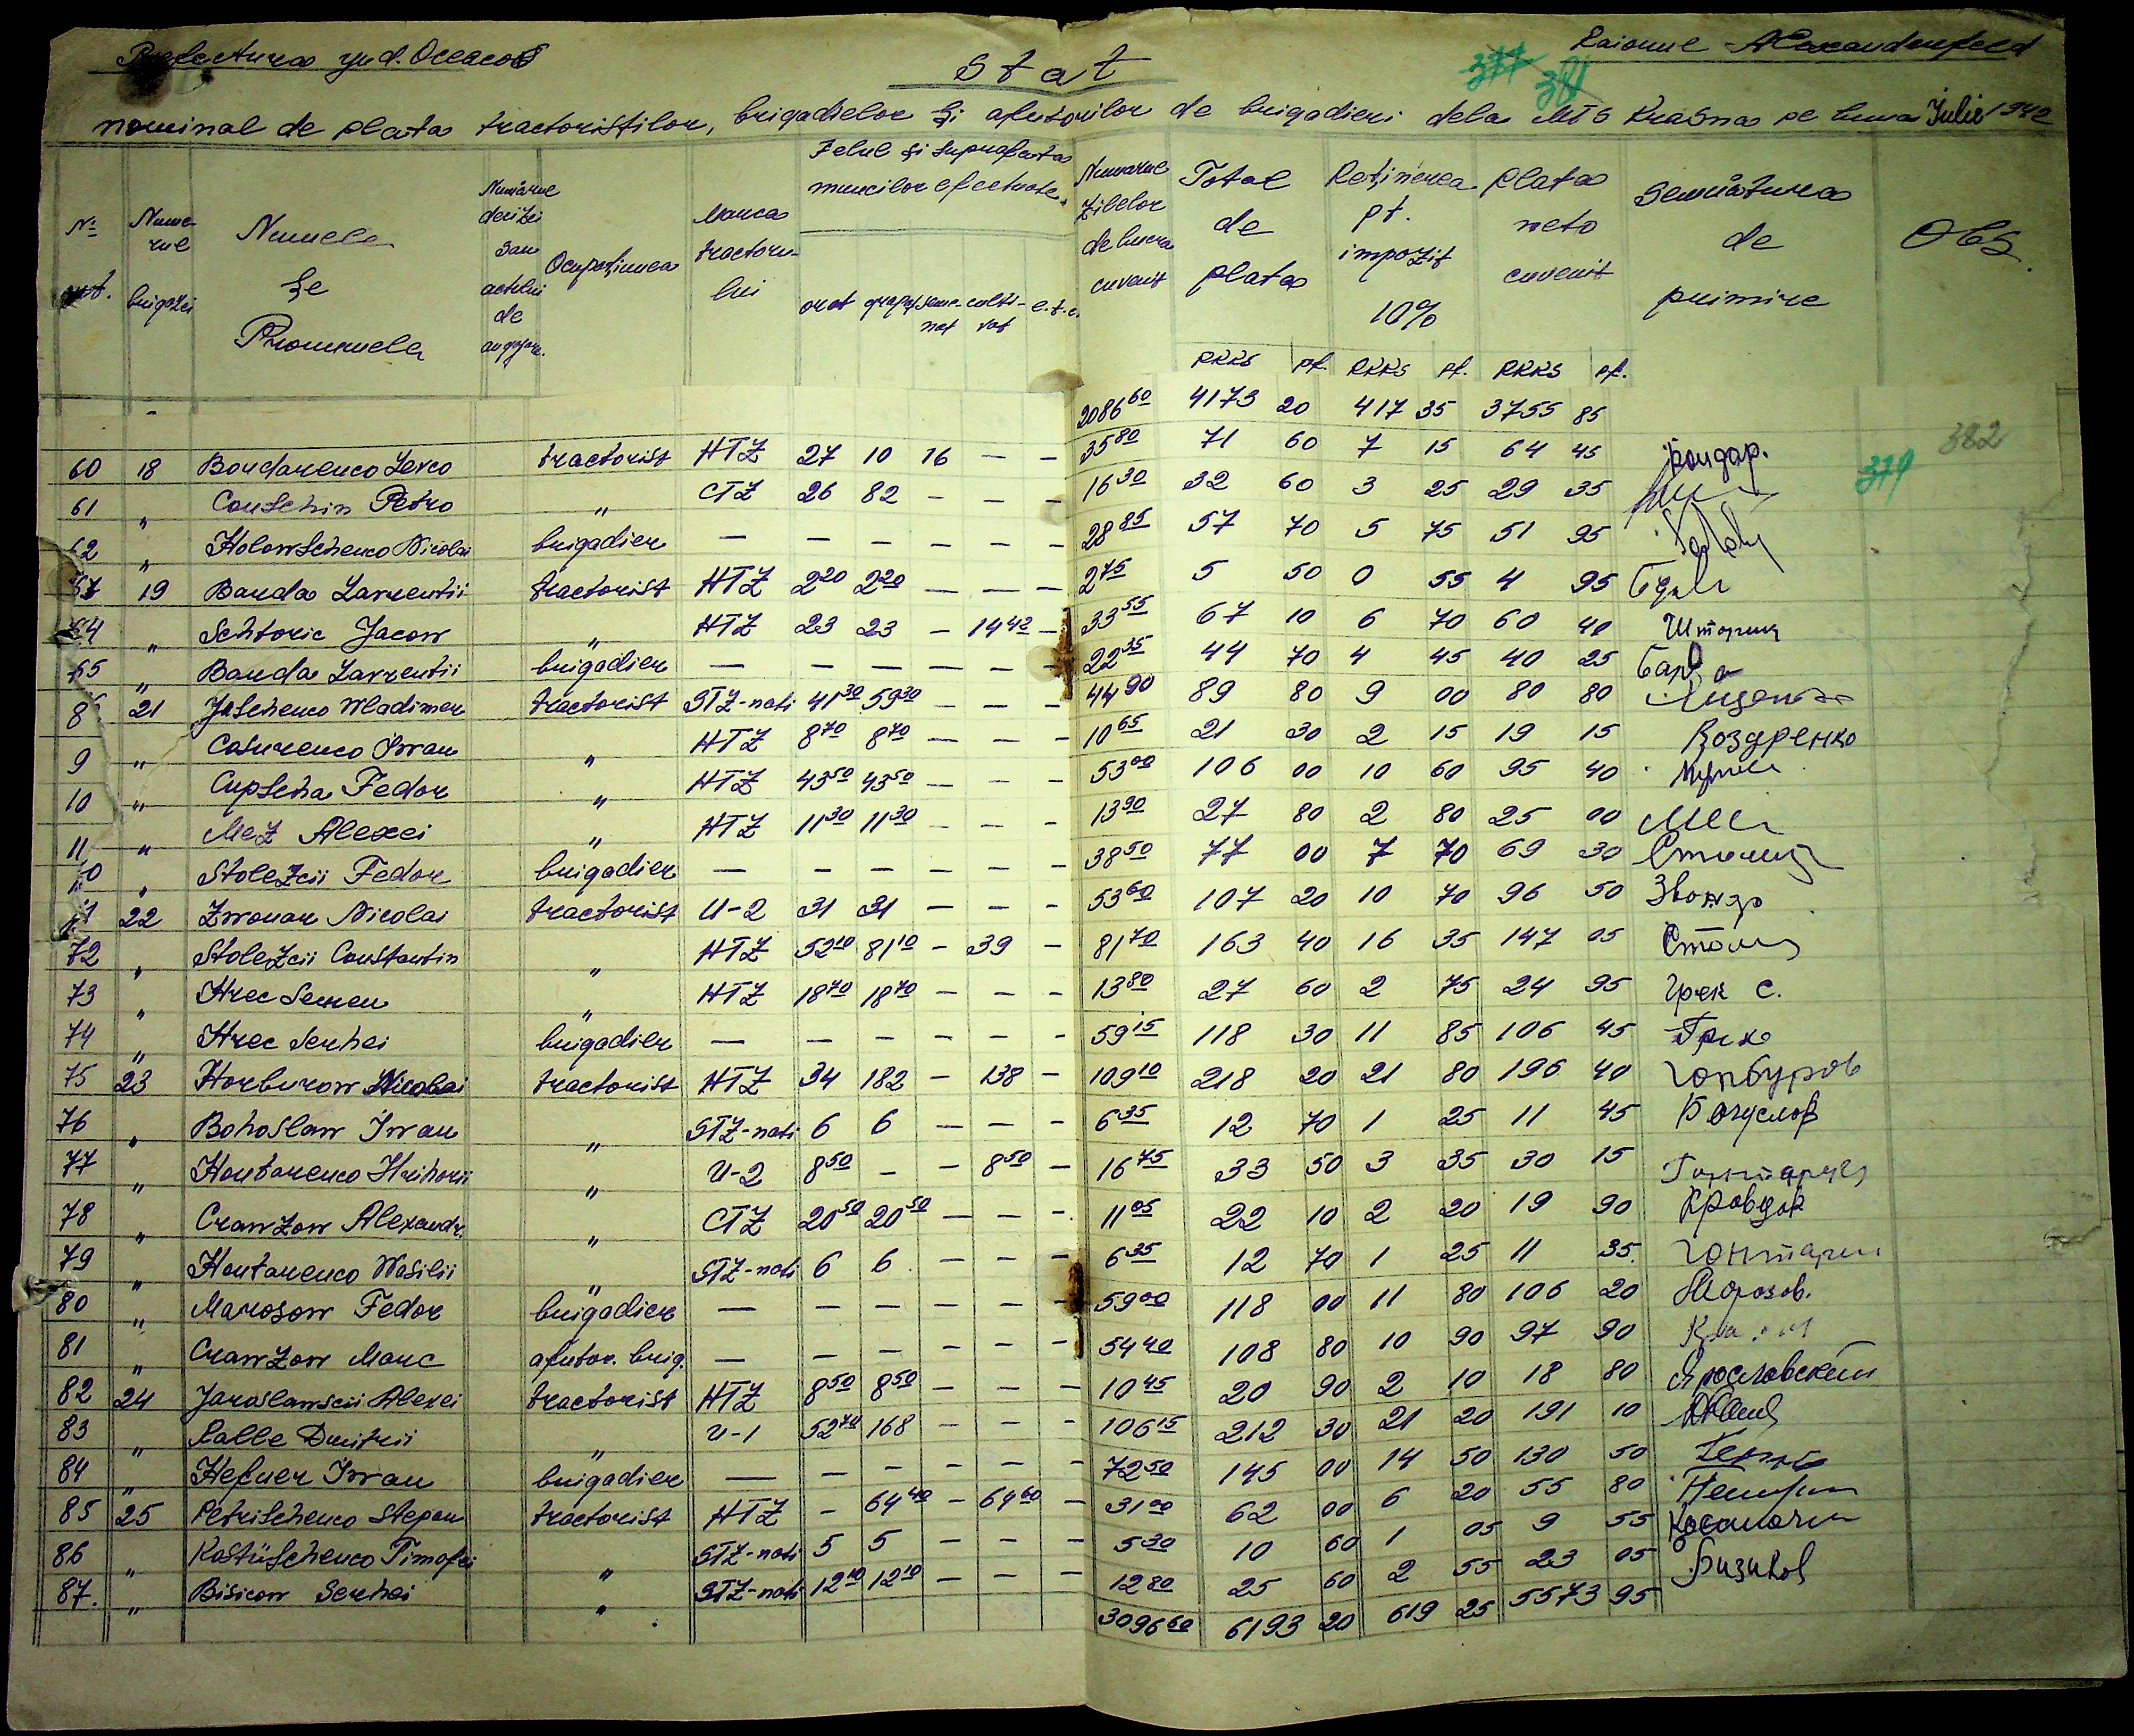 Prefectura jud. Oceacov
Raionul Alexandenfeld
Stat
377 381
nominal de plata tractoriștilor, brigadielor și ajutorilor de brigadieri dela MTS Krasna pe luna Julie 1942
№ crt. | Numerul brigăzii | Numele și Pronumele | Numărul deciziei sau actului de angajare. | Ocupațiunea | Marca tractorului | Felul și suprafața muncilor efectuate. | Numărul zilelor de lucru cuvenit | Total de plata | Reținerea pt. impozit 10% | Plata neto cuvenit | Semnătura de primire | Obs.
arat | grăpat | semenat | cultivat | e.t.c.
RKKS pf. RKKS pf. RKKS pf.
2086 60 4173 20 417 35 3755 85
382
379
60 18 Bondarenco Levco tractorist HTZ 27 10 16 — — 35 80 71 60 7 15 64 45 Бондар.
61 " Conschin Petro " CTZ 26 82 — — — 16 30 32 60 3 25 29 35
62 " Holowschenco Nicolai brigadier — — — — — — 28 85 57 70 5 75 51 95
19 Banda Lavrentii tractorist HTZ 2 20 2 20 — — — 2 75 5 50 0 55 4 95
64 " Schtoric Jacow " HTZ 23 23 — 14 42 — 33 55 67 10 6 70 60 40 Шторик
65 " Banda Lavrentii brigadier — — — — — — 22 35 44 70 4 45 40 25 Банда
8 21 Jaschenco Wladimer tractorist STZ-nati 41 30 59 30 — — — 44 90 89 80 9 00 80 80
9 " Casurenco Iwan " HTZ 8 70 8 70 — — — 10 65 21 30 2 15 19 15 Козаренко
10 " Cupscha Fedor " HTZ 43 50 43 50 — — — 53 00 106 00 10 60 95 40
11 " Mez Alexei " HTZ 11 30 11 30 — — — 13 90 27 80 2 80 25 00
" Stolezcii Fedor brigadier — — — — — — 38 50 77 00 7 70 69 30
22 Zwonar Nicolai tractorist U-2 31 31 — — — 53 60 107 20 10 70 96 50
72 " Stolezcii Constantin " HTZ 52 10 81 10 — 39 — 81 70 163 40 16 35 147 05
73 " Hrec Semen " HTZ 18 70 18 70 — — — 13 80 27 60 2 75 24 95 Грек С.
74 " Hrec Serhei brigadier — — — — — — 59 15 118 30 11 85 106 45
75 23 Horburow Nicolai tractorist HTZ 34 182 — 138 — 109 10 218 20 21 80 196 40 Горбуров
76 " Bohoslaw Iwan " STZ-nati 6 6 — — — 6 35 12 70 1 25 11 45 Богуслов
77 " Hontarenco Hrihorii " U-2 8 50 — — 8 50 — 16 75 33 50 3 35 30 15
78 " Crawzow Alexandr. " CTZ 20 50 20 50 — — — 11 05 22 10 2 20 19 90 Кравцов
79 " Hontarenco Wasilii " STZ-nati 6 6 — — — 6 35 12 70 1 25 11 35
80 " Marosow Fedor brigadier — — — — — — 59 00 118 00 11 80 106 20 Морозов.
81 " Crawzow Marc ajutor. brig. — — — — — — 54 40 108 80 10 90 97 90
82 24 Jaroslawscii Alexei tractorist HTZ 8 50 8 50 — — — 10 45 20 90 2 10 18 80 Ярославский
83 " Ralle Dmitrii " U-1 52 74 168 — — — 106 15 212 30 21 20 191 10
84 " Hefner Iwan brigadier — — — — — — 72 50 145 00 14 50 130 50
85 25 Petrischenco Stepan tractorist HTZ — 64 40 — 64 60 — 31 00 62 00 6 20 55 80
86 " Kostüschenco Timofei " STZ-nati 5 5 — — — 5 30 10 60 1 05 9 55
87. " Bisicow Serhei " STZ-nati 12 10 12 10 — — — 12 80 25 60 2 55 23 05 Бизиков
3096 60 6193 20 619 25 5573 95